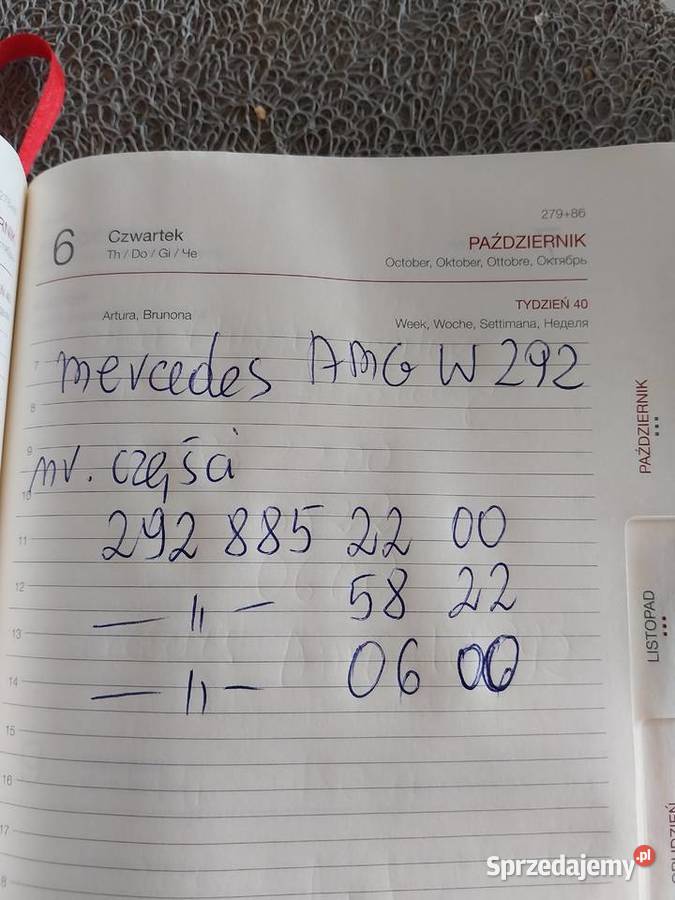 279+86
6 Czwartek PAŹDZIERNIK
Th / Do / Gi / Че October, Oktober, Ottobre, Октябрь
TYDZIEŃ 40
Artura, Brunona Week, Woche, Settimana, Неделя
7
mercedes AMG W 292
8
9
nr. części
10
11 292 885 22 00
12 — 11 — 58 22
13
14 — 11 — 06 00
15
16
17
8
PAŹDZIERNIK
LISTOPAD
GRUDZIEŃ
Sprzedajemy.pl